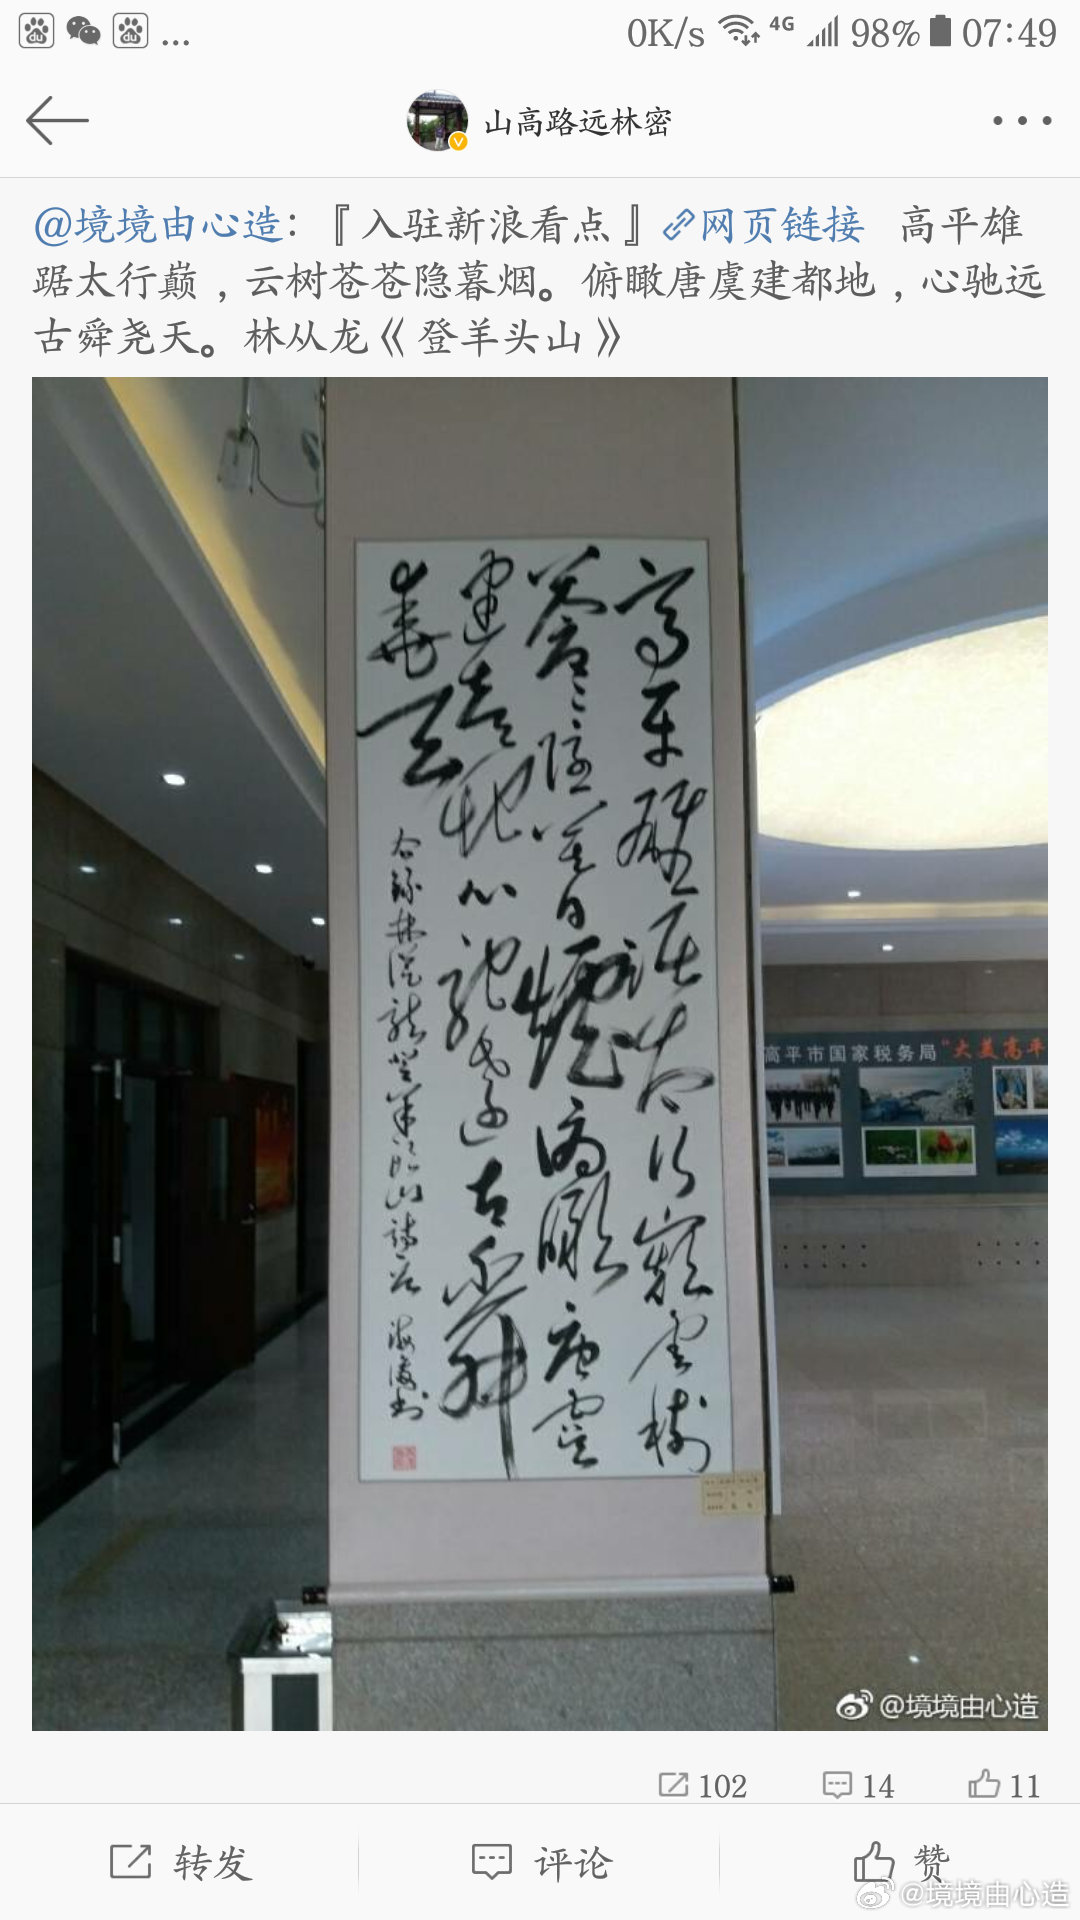 0K/s 4G 98% 07:49
山高路远林密
@境境由心造：『入驻新浪看点』网页链接 高平雄
踞太行巅，云树苍苍隐暮烟。俯瞰唐虞建都地，心驰远
古舜尧天。林从龙《登羊头山》
高平雄踞太行巅云树
苍苍隐暮烟俯瞰唐虞
建都地心驰远古舜
尧天
右录林从龙登羊头山诗一首
书
高平市国家税务局“大美高平
@境境由心造
102 14 11
转发 评论 赞
@境境由心造